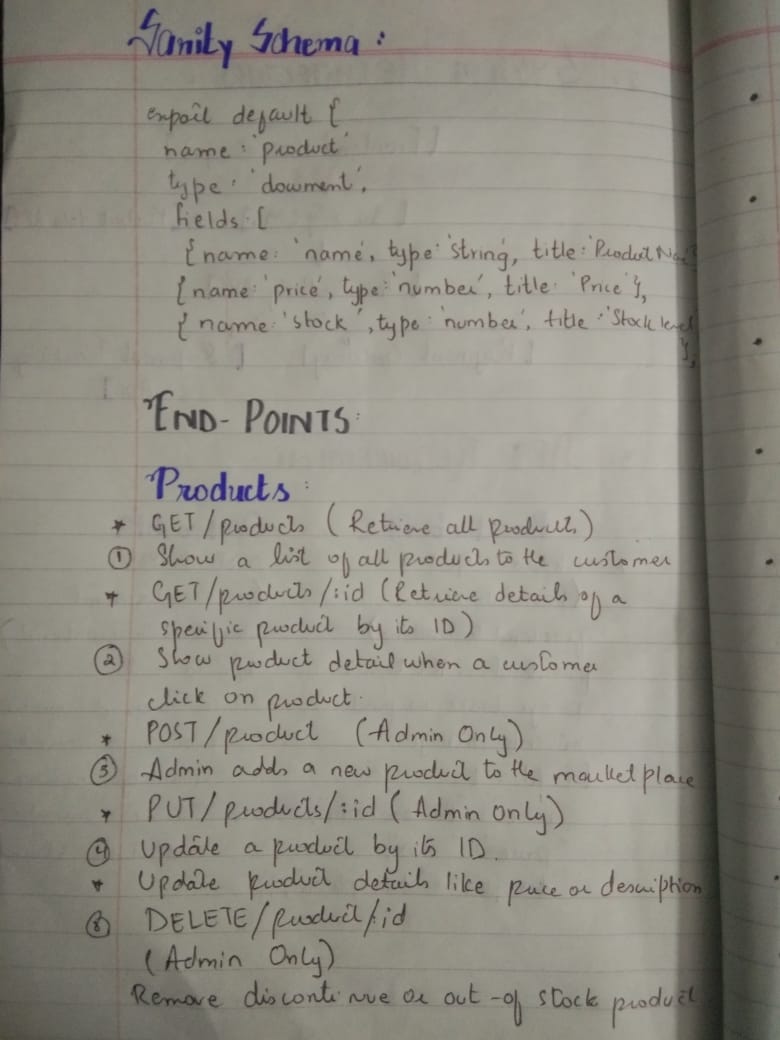 Sanity Schema:
export default {
name: 'product'
type: 'document',
fields: [
{name: 'name', type: 'string', title: 'Product
{name: 'price', type: 'number', title: 'Price'},
{name: 'stock', type: 'number', title: 'Stock level
},
END-POINTS:
Products:
* GET/products (Retrieve all products)
① Show a list of all products to the customer
* GET/products/:id (Retrieve details of a
specific product by its ID)
② Show product detail when a customer
click on product.
* POST/product (Admin Only)
③ Admin adds a new product to the market place
* PUT/products/:id (Admin Only)
④ Update a product by its ID.
* Update product details like price or description
DELETE/product/:id
(Admin Only)
Remove discontinue or out-of stock product